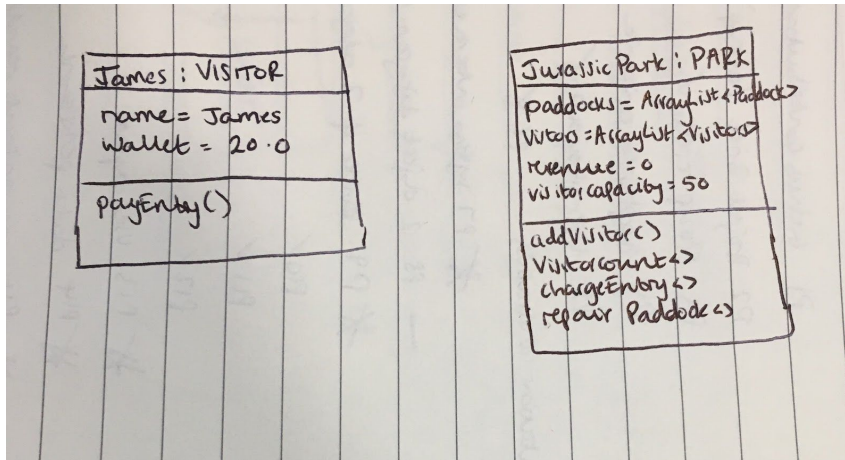 James : VISITOR
name = James
wallet = 20.0
payEntry()
Jurassic Park : PARK
paddocks = ArrayList<Paddock>
Vistors = ArrayList<Visitors>
revenue = 0
visitorcapacity = 50
addVisitor()
Visitorcount<>
chargeEntry<>
repair Paddock<>